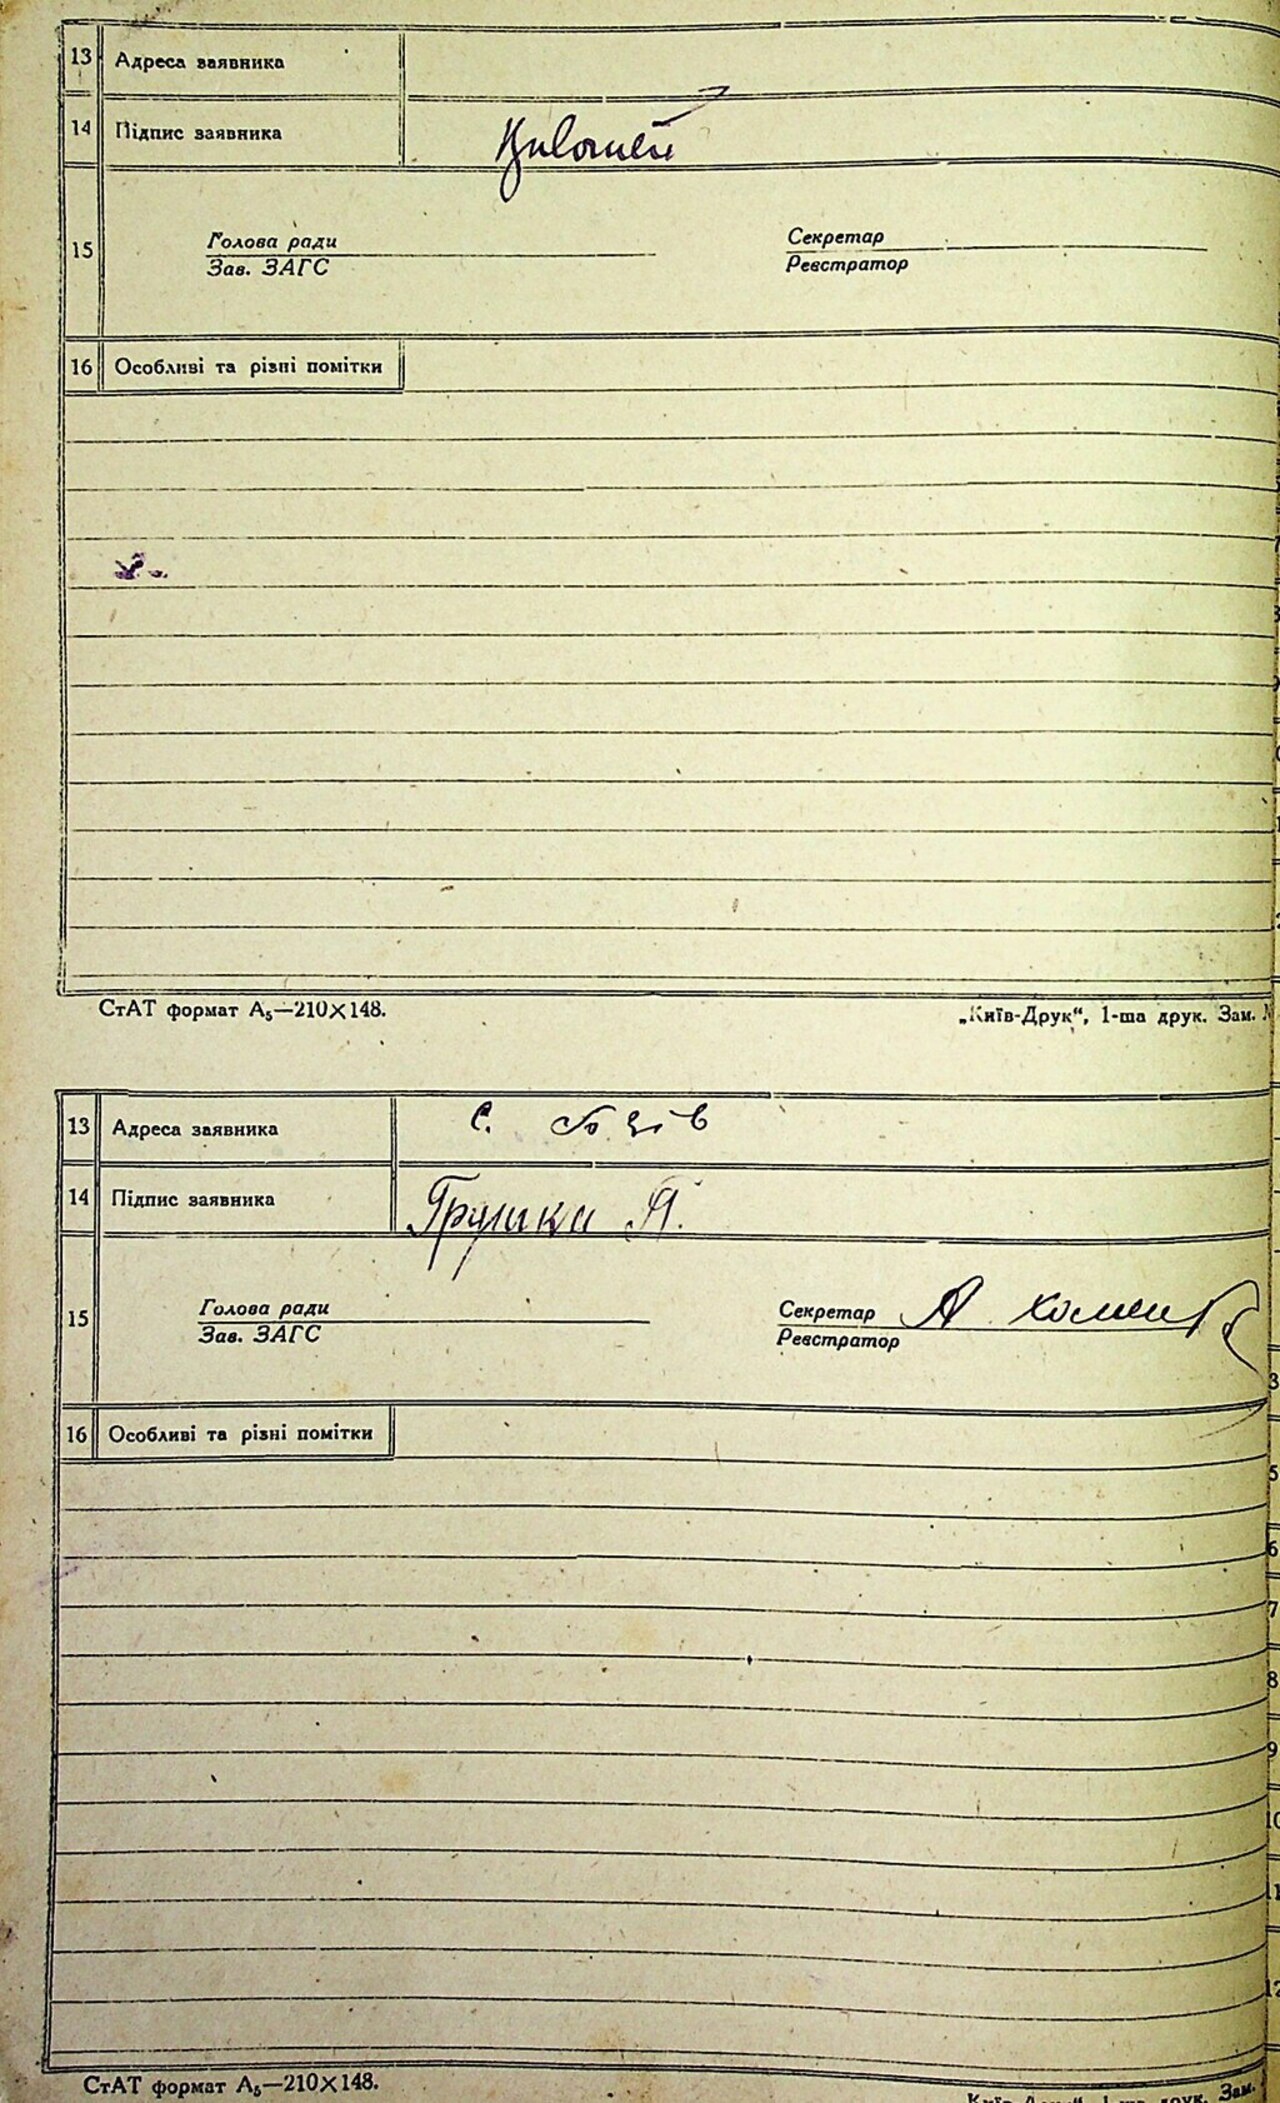 13 Адреса заявника
14 Підпис заявника
15 Голова ради Секретар
Зав. ЗАГС Реєстратор
16 Особливі та різні помітки
СтАТ формат А₅—210×148. „Київ-Друк“, 1-ша друк. Зам.
13 Адреса заявника с.
14 Підпис заявника Грушка П.
15 Голова ради Секретар А
Зав. ЗАГС Реєстратор
16 Особливі та різні помітки
3
5
6
7
8
9
10
11
12
СтАТ формат А₅—210×148. 1-ша друк. Зам.